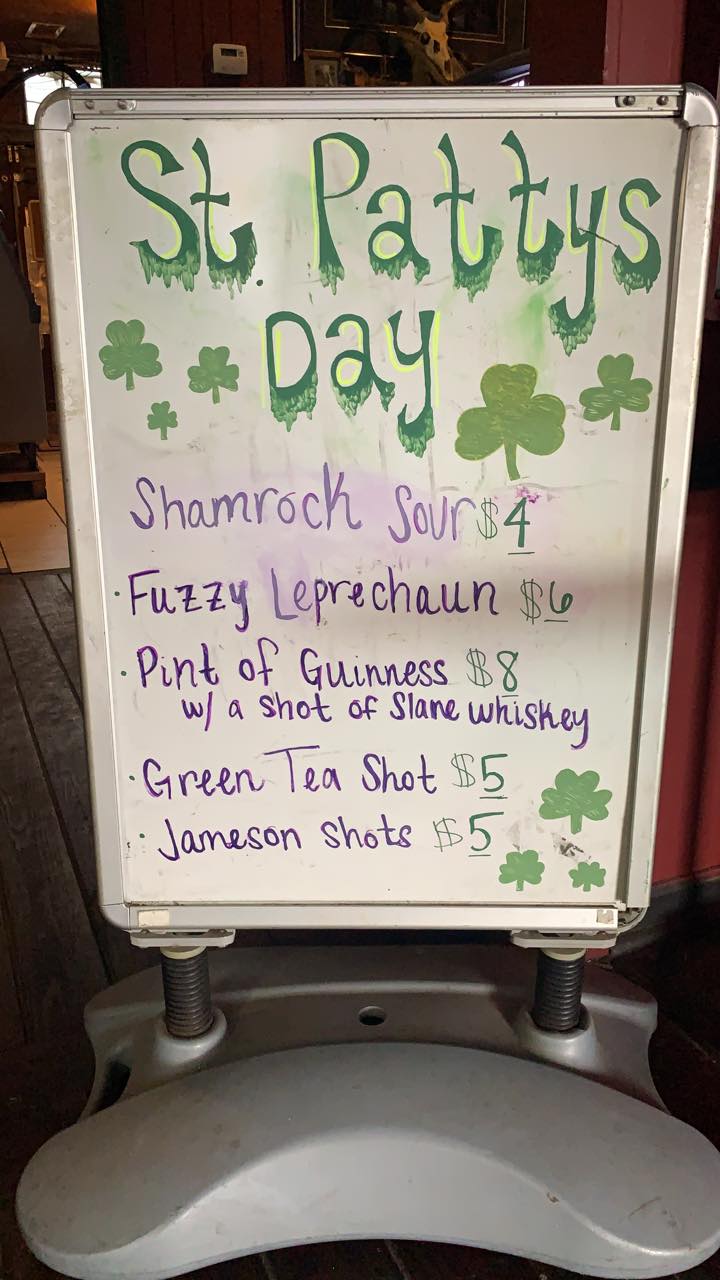 St. Pattys
Day
Shamrock Sour $4
· Fuzzy Leprechaun $6
· Pint of Guinness $8
w/ a shot of Slane whiskey
· Green Tea Shot $5
· Jameson shots $5